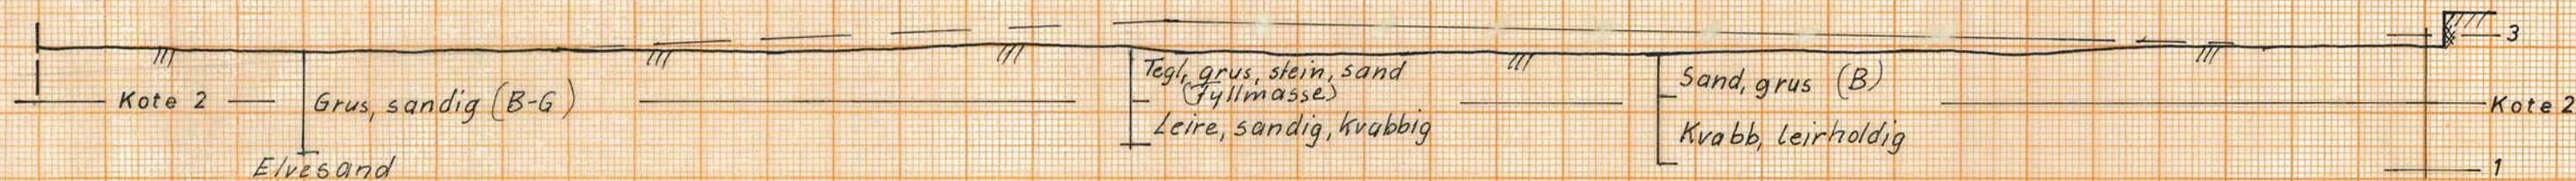 Kote 2
Grus, sandig (B-G)
Elvesand
Tegl, grus, stein, sand
(Fyllmasse)
Leire, sandig, kvabbig
Sand, grus (B)
Kvabb, leirholdig
3
Kote 2
1